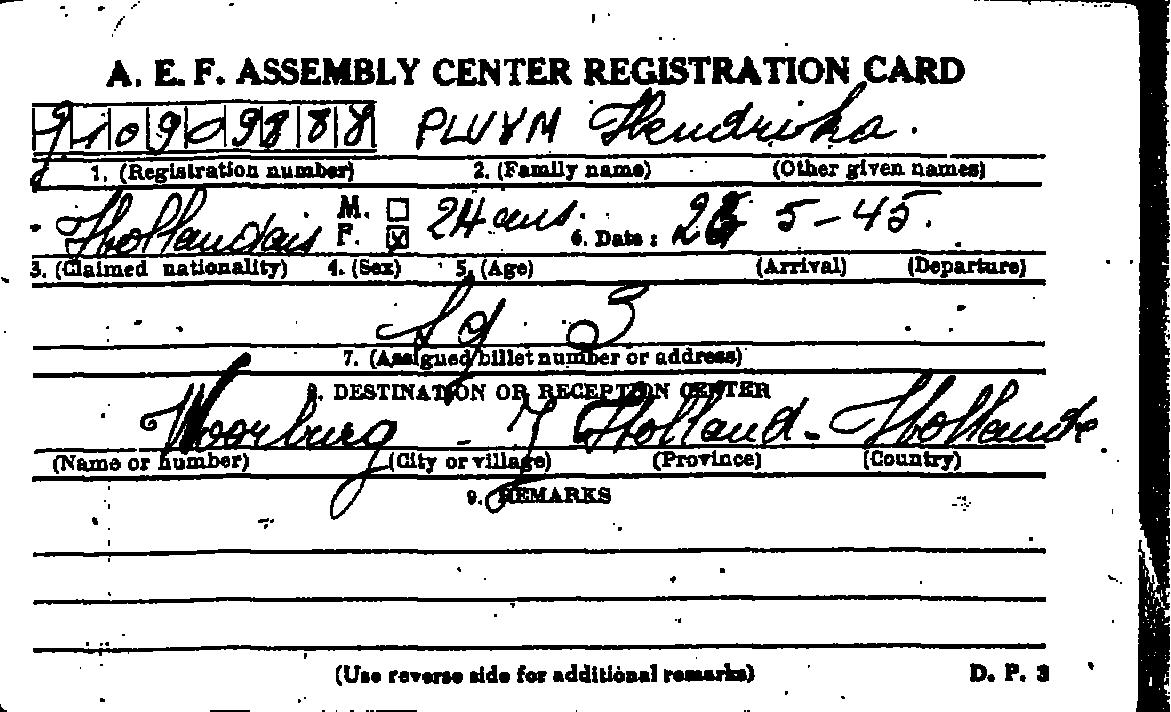 A. E. F. ASSEMBLY CENTER REGISTRATION CARD
PLUYM Hendrika.
1. (Registration number) 2. (Family name) (Other given names)
Hollandais M. ☐ F. ☒ 24 ans. 6. Date: 5-45.
3. (Claimed nationality) 4. (Sex) 5. (Age) (Arrival) (Departure)
3
7. (Assigned billet number or address)
8. DESTINATION OR RECEPTION CENTER
Woorburg - Z Holland - Hollande
(Name or number) (City or village) (Province) (Country)
9. REMARKS
(Use reverse side for additional remarks) D. P. 3